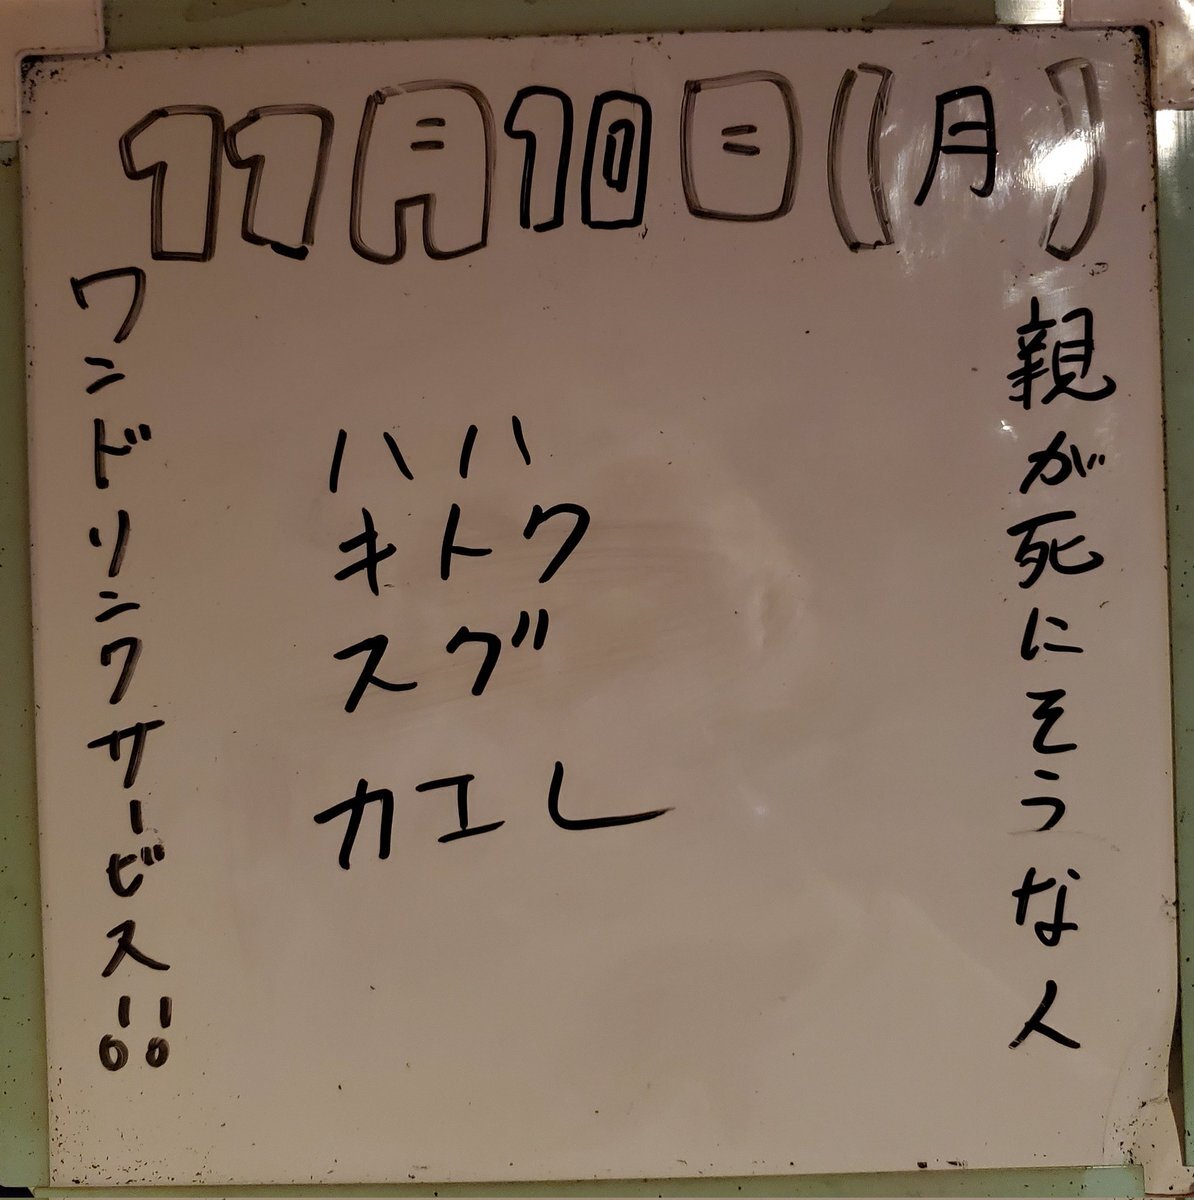 11月10日(月)
親が死にそうな人
ハハ
キトク
スグ
カエレ
ワンドリンクサービス!!